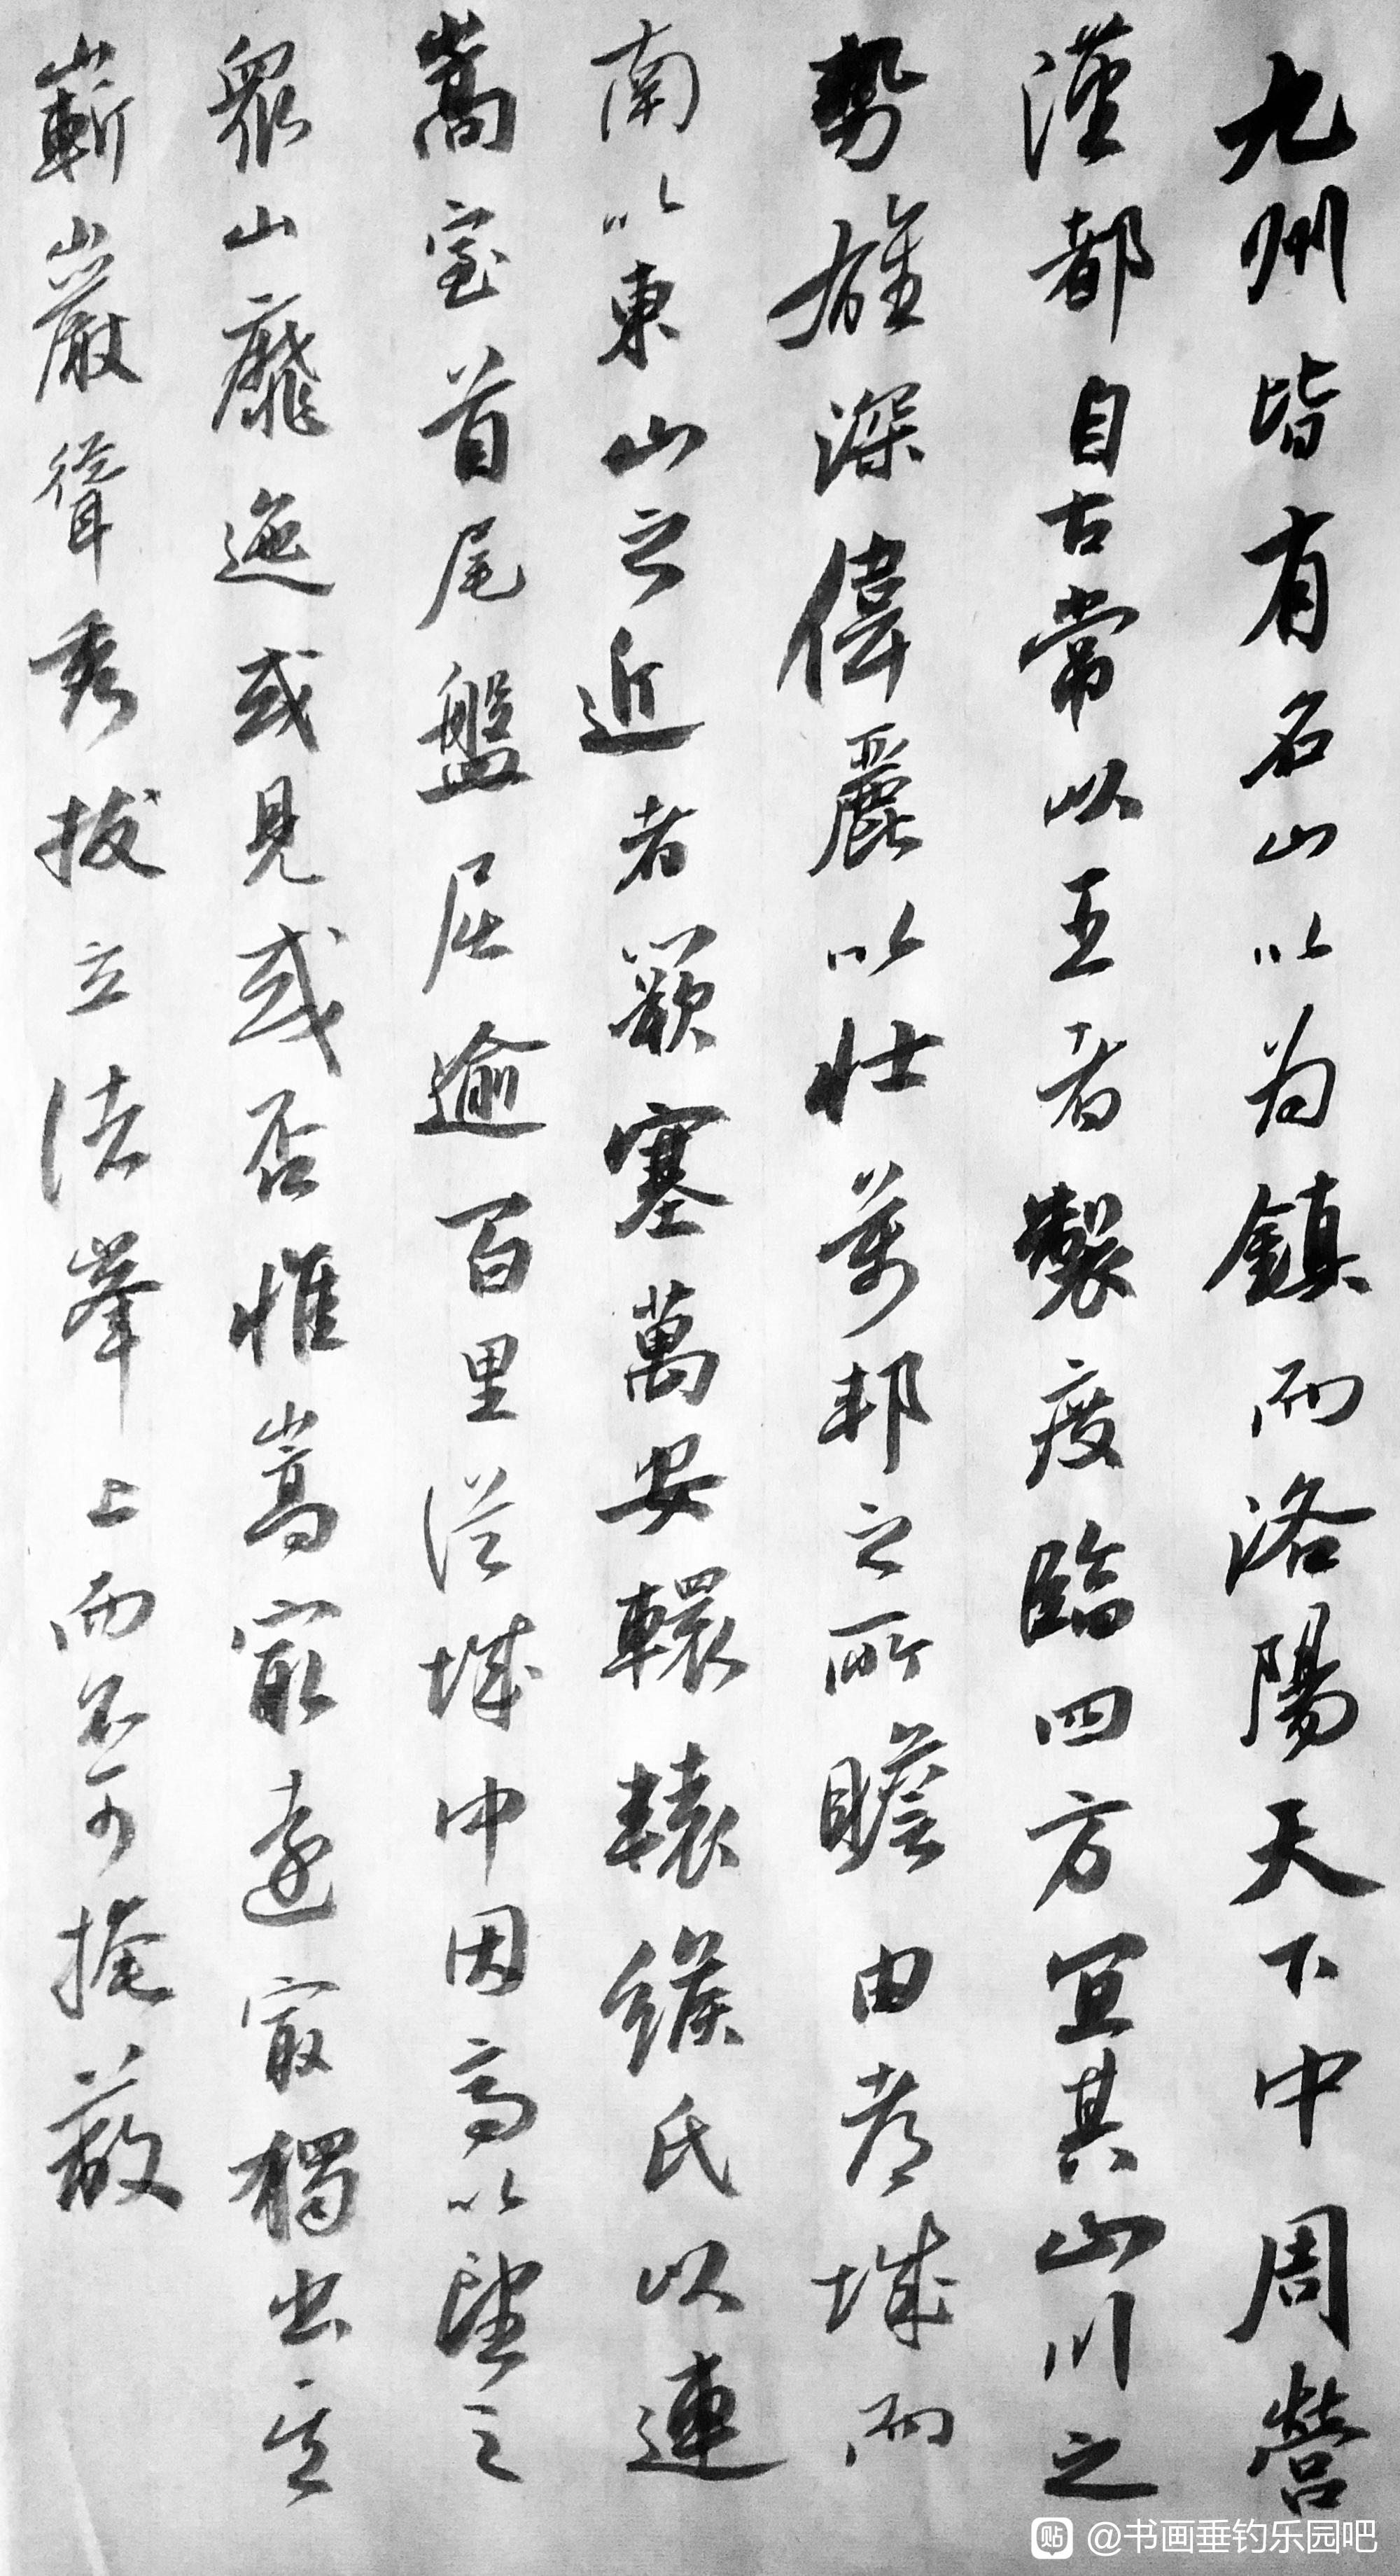 九州皆有名山以為鎮而洛陽天下中周營
漢都自古常以王者製度臨四方宜其山川之
勢雄深偉麗以壯萬邦之所瞻由都城而
南以東山之近者闕塞萬安轘轅緱氏以連
嵩室首尾盤屈逾百里從城中因高以望之
眾山靡迤或見或否惟嵩最遠最獨出其
嶄巖聳秀拔立諸峯上而不可掩蔽
貼 @书画垂钓乐园吧